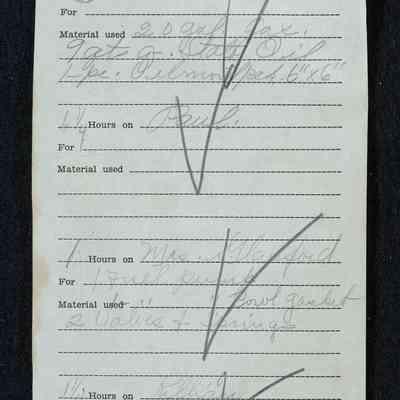 For
Material used 20 gal gas.
9 qts g. State Oil
1 pc. 6"x6"
1 1/4 Hours on Paul.
For
Material used
1 Hours on Mrs.
For 1 Fuel pump
Material used 1 " " Bowl gasket
2 Valves & springs
Hours on